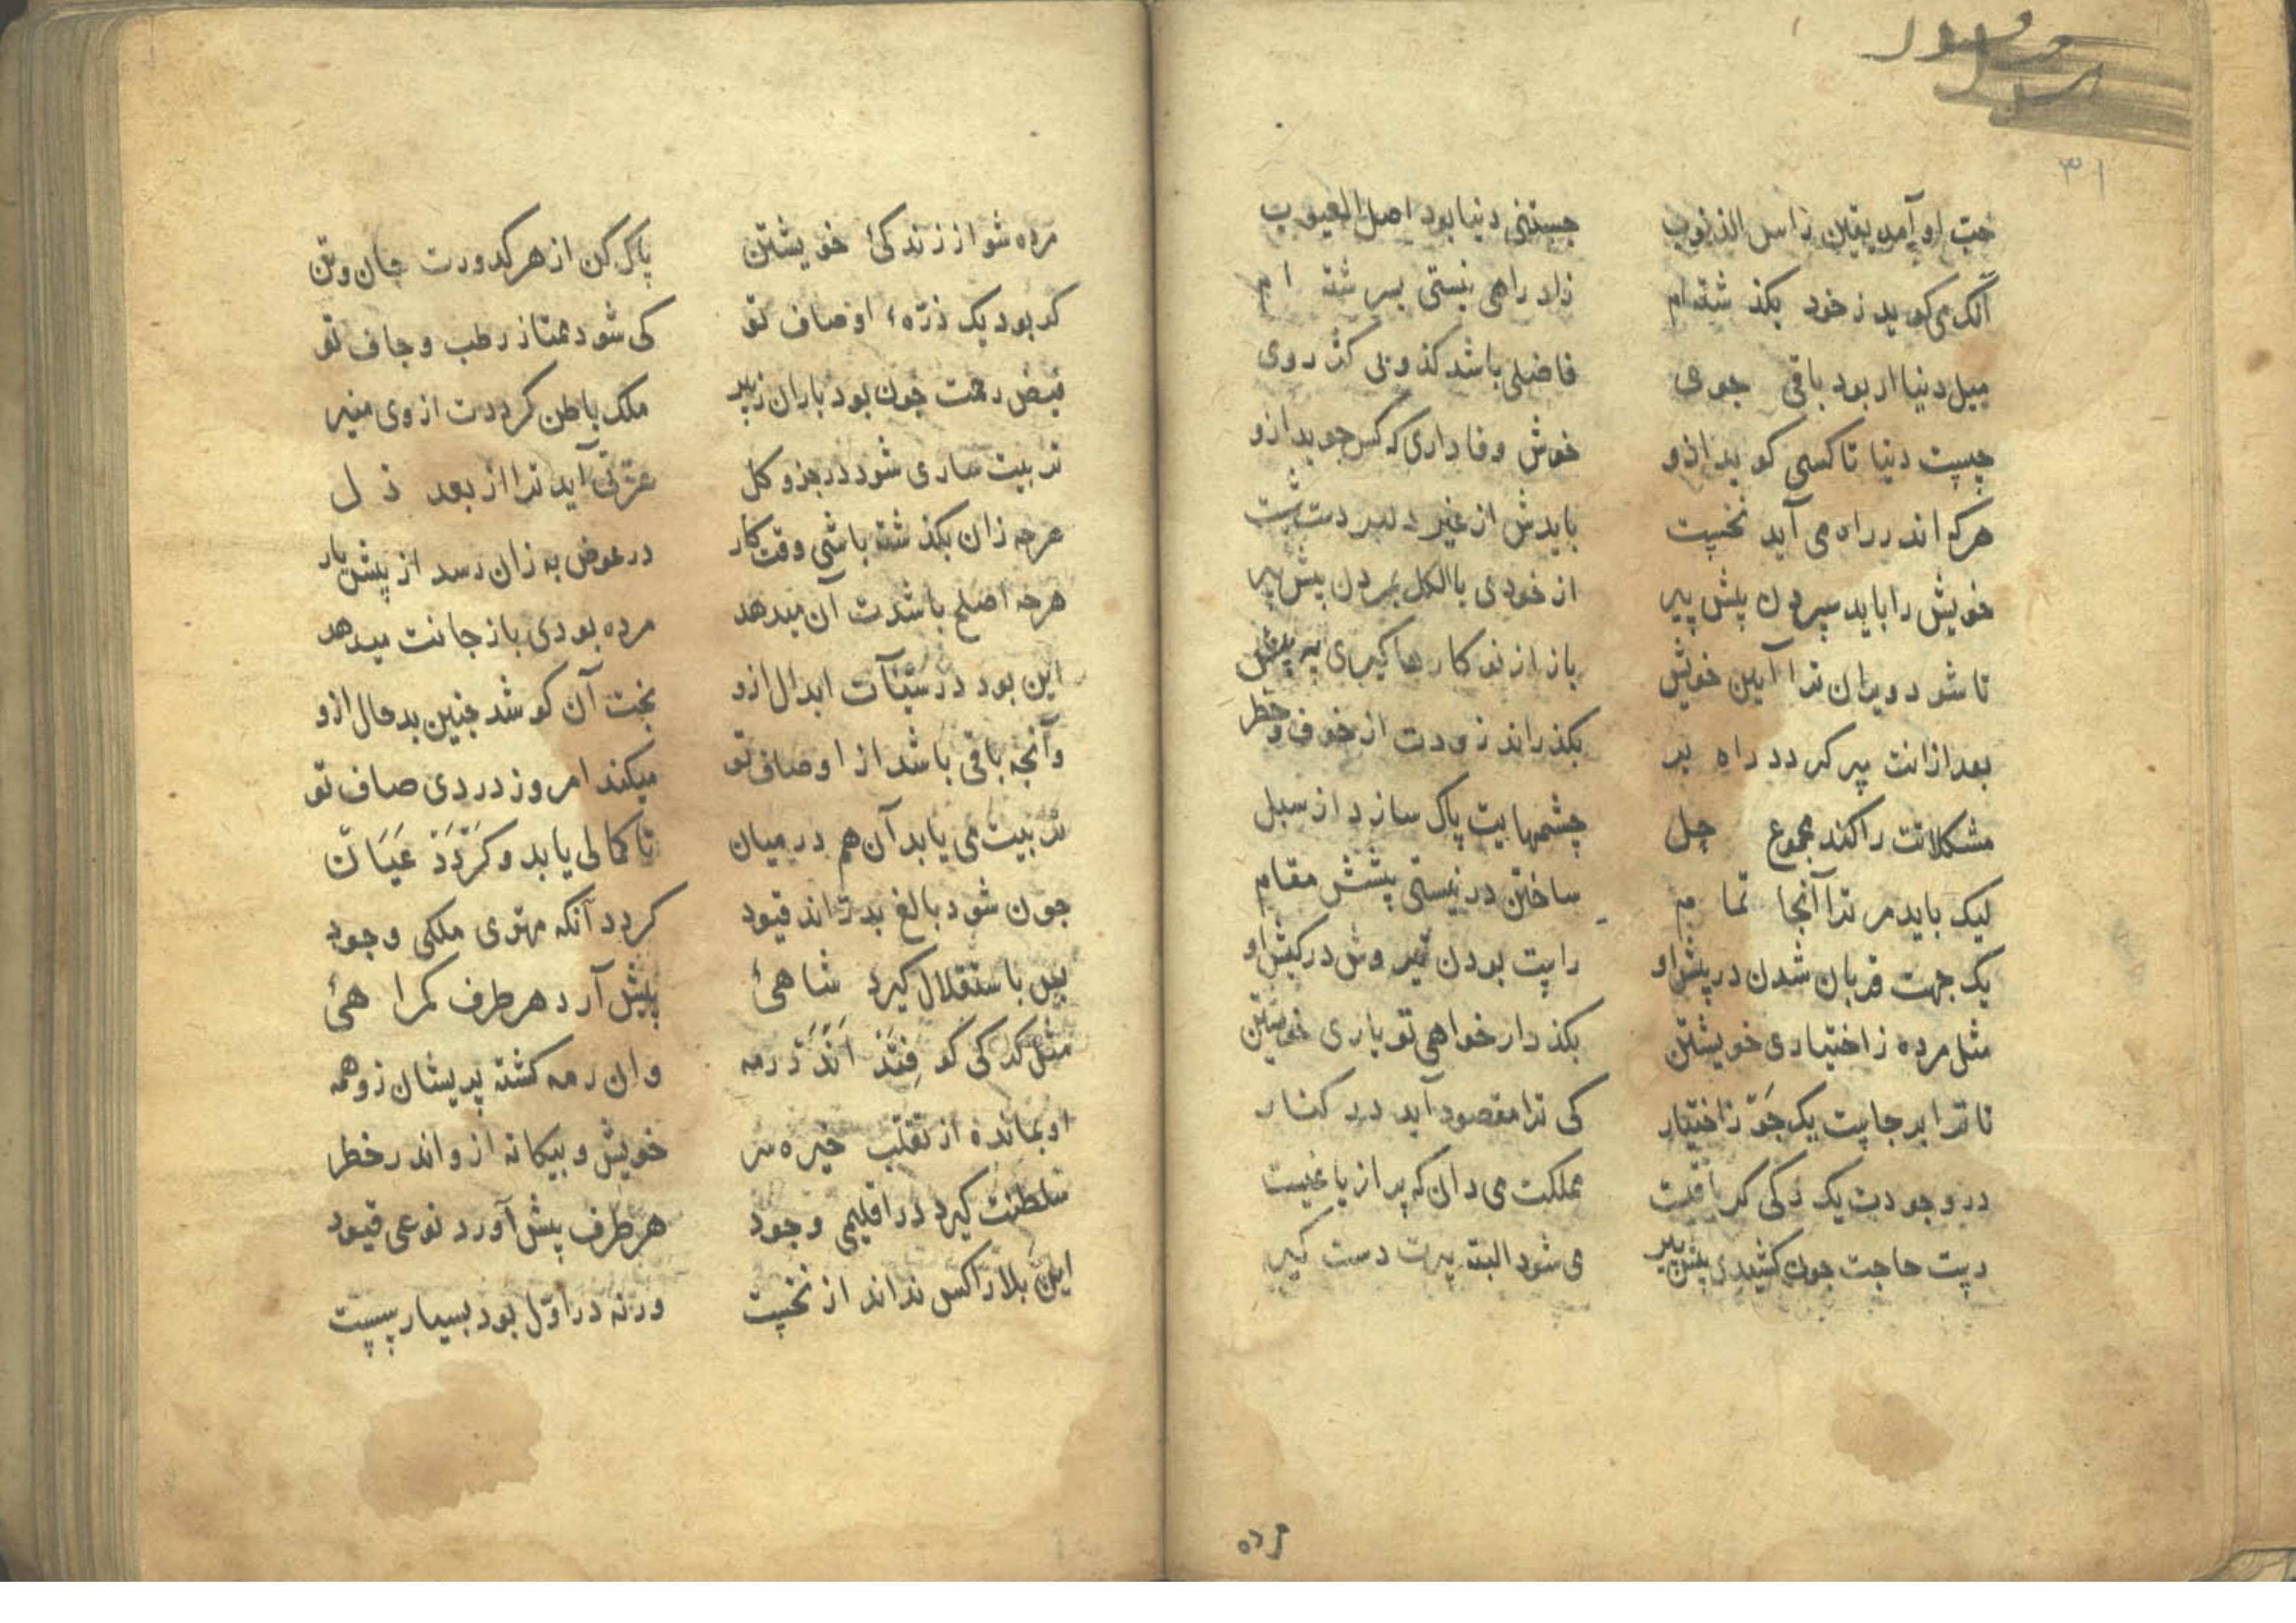 ۳۱
حب او آمد یقین راس الذنوب جستنی دنیا بود اصل العیوب
آنک می کوید ز خود بکذ شته ام زاد راهی نیستی بسر شته ام
میل دنیا ار بود باقی جوی فاضلی باشد کذ وبی کژ روی
چیست دنیا تا کسی کوید ازو خوش وفاداری که کس جوید ازو
هرکه اندر راه می آید نخست بایدش از غیر دلبر دست شست
خویش را باید سپردن پیش پیر از خودی بالکل بمردن پیش پیر
تا شود ویران ترا آیین خویش باز از نو کارها کیری به پیش
بعد ازانت پیر کردد راه بر بکذراند زودت از خوف و خطر
مشکلاتت را کند مجموع حل چشمهایت پاک سازد از سبل
لیک باید مر ترا آنجا تمام ساختن در نیستی پیشش مقام
یک جهت قربان شدن در پیش او راست بودن تیر وش در کیش او
مثل مرده ز اختیاری خویشتن بکذر ار خواهی تو یاری خویشتن
تا ترا بر جاست یک جو ز اختیار کی ترا مقصود آید در کنار
در وجودت یک رکی کر باقیست مملکت می دان که پر از یاغیست
دست حاجت چون کشیدی پیش پیر می شود البته پیرت دست کیر
مرده
مرده شو از زندکئ خویشتن پاک کن از هر کدورت جان و تن
کر بود یک ذرهء اوصاف تو کی شود ممتاز رطب و جاف تو
فیض رحمت چون بود باران ز پیر ملک باطن کرددت از وی منیر
تربیت ساری شود در جزو کل عزتی آید ترا از بعد ذل
هرچه زان بکذ شته باشی وقت کار در عوض به زان رسد از پیش یار
هرچه اصلح باشدت آن میدهد مرده بودی باز جانت میدهد
این بود در سیّآت ابدال ازو بخت آن کو شد چنین بد حال ازو
وآنچه باقی باشد از اوصاف تو میکند امروز دردی صاف تو
تربیت می یابد آن هم در میان تا کمالی یابد و کردد عیان
چون شود بالغ بدراند قیود کردد آنکه مهتری ملکی وجود
پس باستقلال کیرد شاهئ پیش آرد هر طرف کمراهئ
مثل کرکی کو فتد اندر رمه وان رمه کشته پریشان زو همه
او بمانده از تقلب خیره سر خویش و بیکانه ازو اندر خطر
سلطنت کیرد در اقلیمی وجود هر طرف پیش آورد نوعی قیود
این بلا را کس نداند از نخست ورنه در اول بود بسیار سست